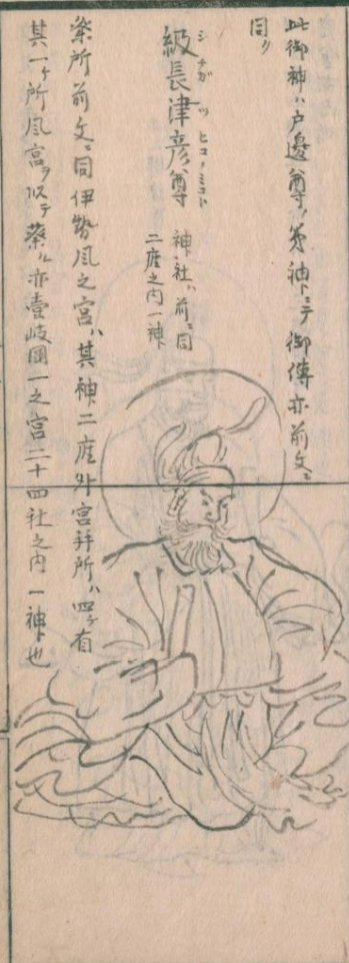 此御神ハ戸邊尊ノ男神ニテ御傳亦前文ニ
同ク
級長津彦尊 神社ハ前ニ同
シナガツヒコノミコト
二座之内一神
祭所前文ニ同伊勢風之宮ハ其神二座外宮拝所ハ四ヶ有
其一ヶ所風宮ヲ以テ祭ル亦壹岐國一之宮二十四社之内一神也